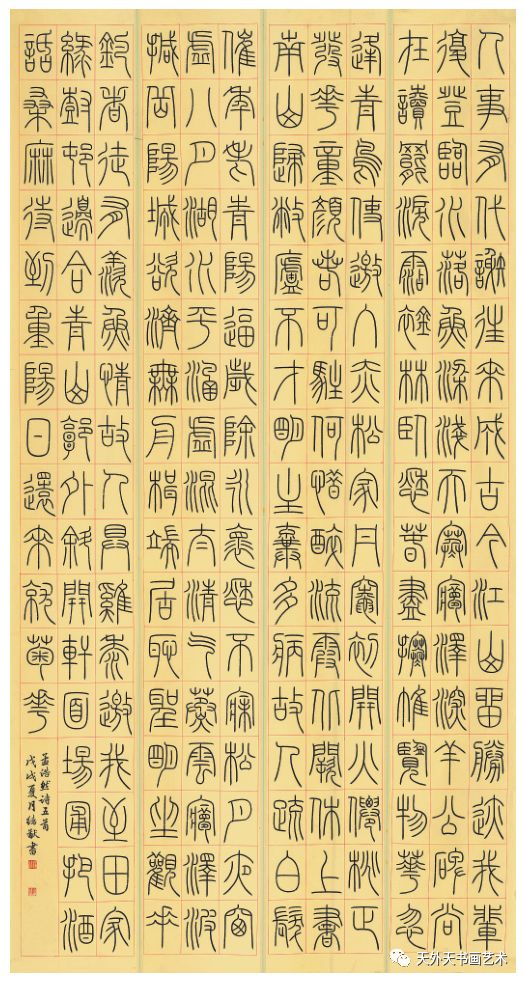 人事有代謝往來成古今江山留勝迹我輩
復登臨水落魚梁淺天寒夢澤深羊公碑尚
在讀罷淚霑襟林臥愁春盡搴帷覽物華忽
逢青鳥使邀入赤松家丹竈初開火僊桃正
發花童顏若可駐何惜醉流霞北闕休上書
南山歸敝廬不才明主棄多病故人疏白髮
催年老青陽逼歲除永懷愁不寐松月夜窗
虛八月湖水平涵虛混太清气蒸雲夢澤波
撼岳陽城欲濟無舟楫端居恥聖明坐觀垂
釣者徒有羨魚情故人具雞黍邀我至田家
綠樹村邊合青山郭外斜開軒面場圃把酒
話桑麻待到重陽日還來就菊花
孟浩然詩五首
戊戌夏月書
天外天书画艺术